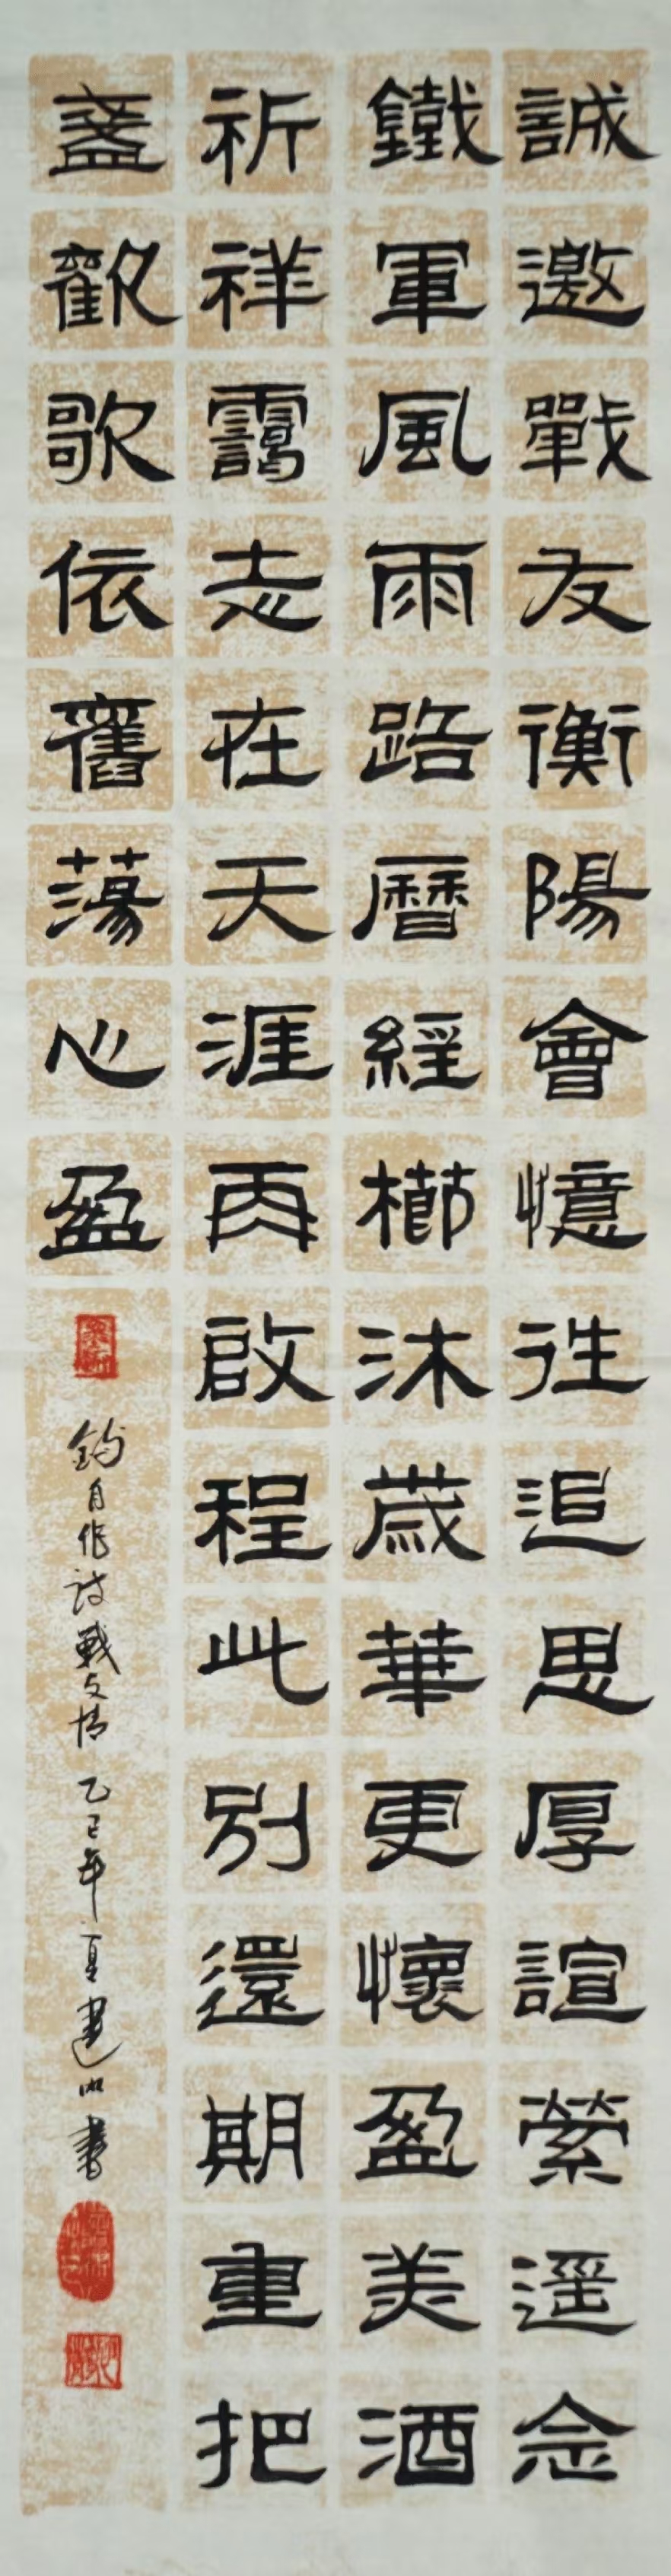 誠邀戰友衡陽會憶往追思厚誼縈遥念
鐵軍風雨路曆經櫛沐歲華更懷盈美酒
祈祥靄志在天涯再啟程此別還期重把
盞歡歌依舊蕩心盈
鈞自作詩戰友情 乙巳年夏建明書